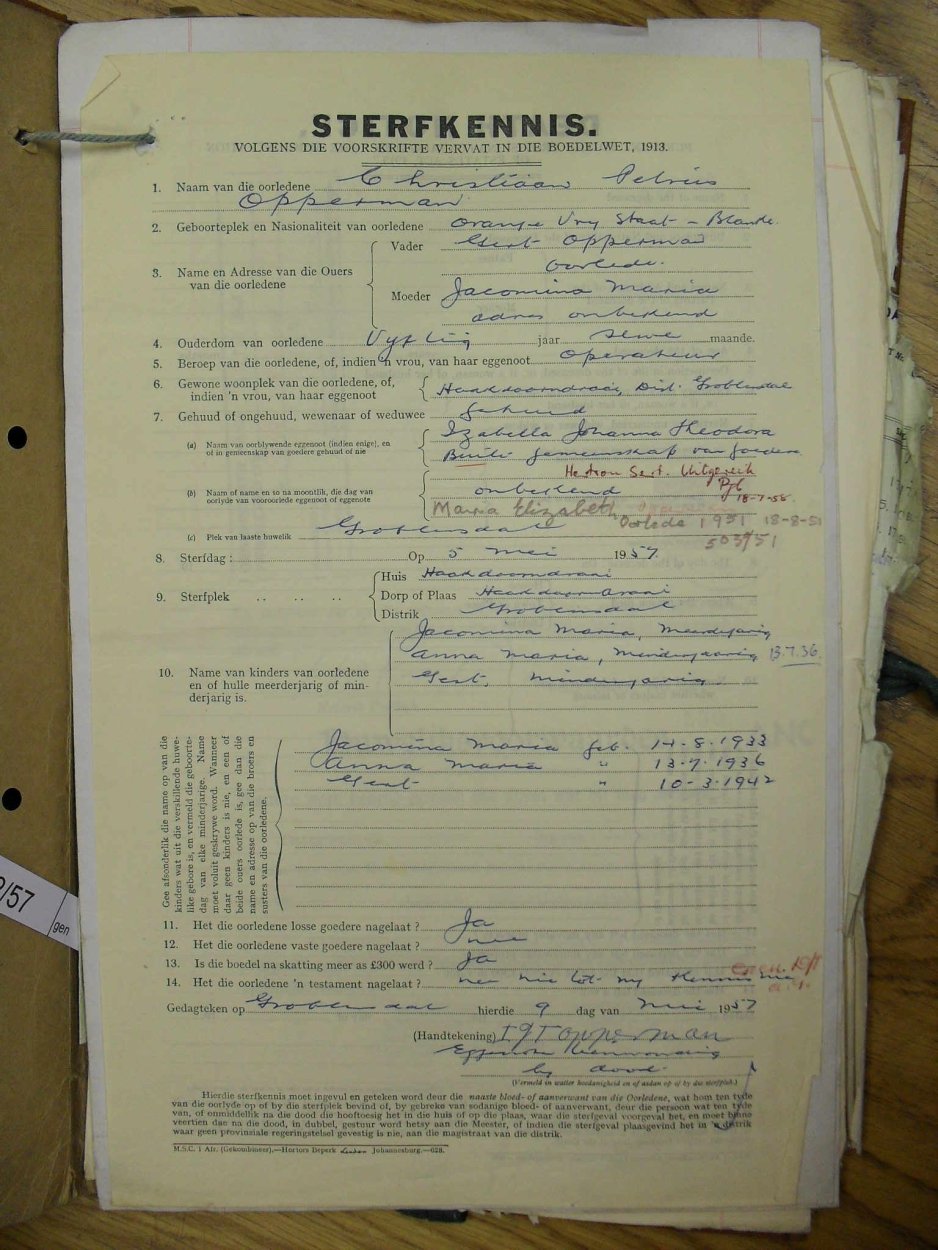 STERFKENNIS.
VOLGENS DIE VOORSKRIFTE VERVAT IN DIE BOEDELWET, 1913.
1. Naam van die oorledene Christiaan Petrus
Opperman
2. Geboorteplek en Nasionaliteit van oorledene Oranje Vry Staat – Blanke.
3. Name en Adresse van die Ouers van die oorledene
Vader Gert Opperman
Oorlede.
Moeder Jacomina Maria
adres onbekend
4. Ouderdom van oorledene Vyftig jaar Sewe maande.
5. Beroep van die oorledene, of, indien 'n vrou, van haar eggenoot Operateur
6. Gewone woonplek van die oorledene, of,
indien 'n vrou, van haar eggenoot Haakdoorndraai, Dist. Groblersdal
7. Gehuud of ongehuud, wewenaar of weduwee Gehuud
(a) Naam van oorblywende eggenoot (indien enige), en
of in gemeenskap van goedere gehuud of nie
Izabella Johanna Theodora
Buite gemeenskap van goedere
Hertrou Sert. Uitgereik
18-7-58.
(b) Naam of name en so na moontlik, die dag van
oorlyde van vooroorlede eggenoot of eggenote
onbekend
Maria Elizabeth
Oorlede 1951 18-8-51
503/51
(c) Plek van laaste huwelik Groblersdal
8. Sterfdag : Op 5 Mei 1957
9. Sterfplek .. .. ..
Huis Haakdoorndraai
Dorp of Plaas Haakdoorndraai
Distrik Groblersdal
10. Name van kinders van oorledene
en of hulle meerderjarig of min-
derjarig is.
Jacomina Maria, Meerderjarig
Anna Maria, Minderjaarig 13.7.36.
Gert, Minderjarig
Gee afsonderlik die name op van die
kinders wat uit die verskillende huwe-
like gebore is, en vermeld die geboorte-
dag van elke minderjarige. Name
moet voluit geskrywe word. Wanneer
daar geen kinders is nie, en een of
beide ouers oorlede is, gee dan die
name en adresse op van die broers en
susters van die oorledene.
Jacomina Maria geb. 14-8-1933
Anna Maria " 13-7-1936
Gert " 10-3-1942
11. Het die oorledene losse goedere nagelaat ? Ja
12. Het die oorledene vaste goedere nagelaat ? nee
13. Is die boedel na skatting meer as £300 werd ? Ja
14. Het die oorledene 'n testament nagelaat ? nee nie tot my kennis nie
Gedagteken op Groblersdal hierdie 9 dag van Mei 1957
(Handtekening) I J T Opperman
Eggenote teenwoordig
by dood.
(Vermeld in watter hoedanigheid en of asdan op of by die sterfplek.)
Hierdie sterfkennis moet ingevul en geteken word deur die naaste bloed- of aanverwant van die Oorledene, wat hom ten tyde
van die oorlyde op of by die sterfplek bevind of, by gebreke van sodanige bloed- of aanverwant, deur die persoon wat ten tyde
van, of onmiddelik na die dood die hooftoesig het in die huis of op die plaas, waar die sterfgeval voorgeval het, en moet binne
veertien dae na die dood, in dubbel, gestuur word hetsy aan die Meester, of indien die sterfgeval plaasgevind het in 'n distrik
waar geen provinsiale regeringstelsel gevestig is nie, aan die magistraat van die distrik.
M.S.C. 1 Afr. (Gekombineer).—Hortors Beperk Johannesburg.—628.
/57
gen